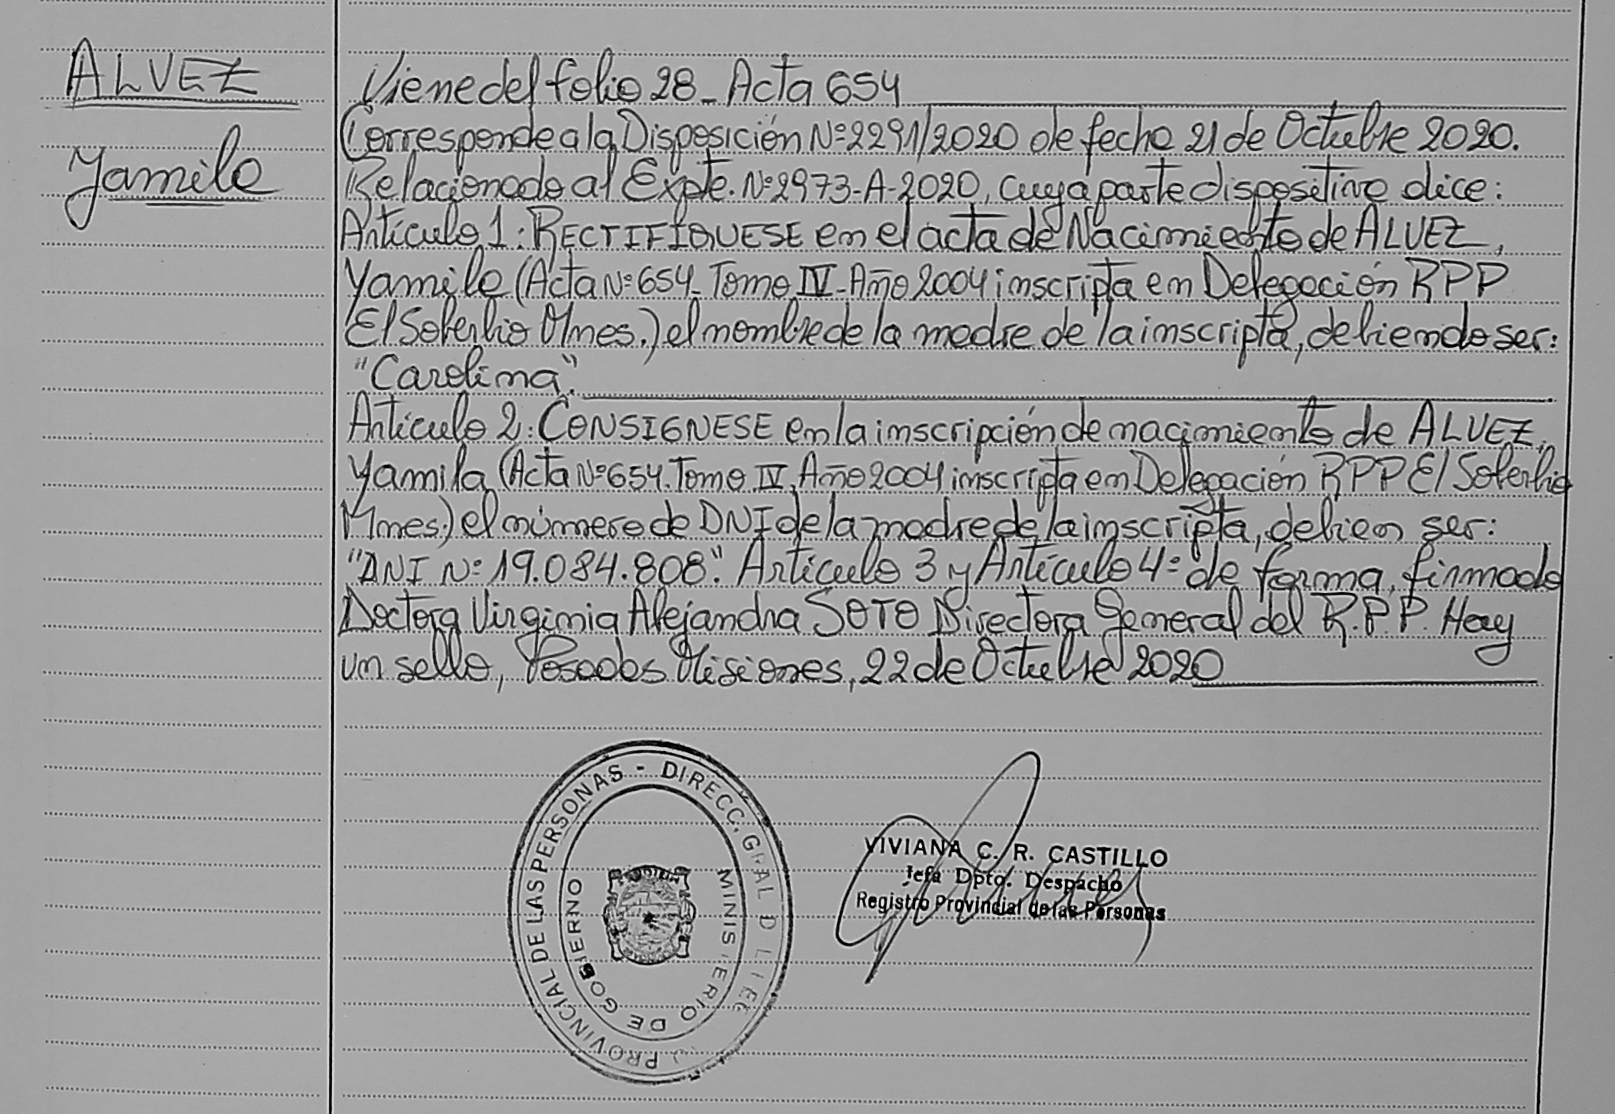 ALVEZ
Yamila
Viene del folio 28_ Acta 654
Corresponde a la Disposición Nº 2291/2020 de fecha 21 de Octubre 2020.
Relacionado al Expte. Nº 2973-A-2020, cuya parte dispositiva dice:
Artículo 1: RECTIFIQUESE en el acta de Nacimiento de ALVEZ,
Yamila (Acta Nº 654_ Tomo IV_ Año 2004 inscripta en Delegación RPP
El Soberbio Mnes.) el nombre de la madre de la inscripta, debiendo ser:
"Carolina".
Artículo 2: CONSIGNESE en la inscripción de nacimiento de ALVEZ,
Yamila (Acta Nº 654. Tomo IV. Año 2004 inscripta en Delegación RPP El Soberbio
Mnes.) el número de DNI de la madre de la inscripta, debien ser:
"DNI Nº 19.084.808". Artículo 3 y Artículo 4º de forma, firmado
Doctora Virginia Alejandra SOTO Directora General del R.P.P. Hay
un sello, Posadas Misiones, 22 de Octubre 2020
PROVINCIAL DE LAS PERSONAS - DIRECC. GRAL D
MINISTERIO DE GOBIERNO
VIVIANA C. R. CASTILLO
Jefa Dpto. Despacho
Registro Provincial de las Personas